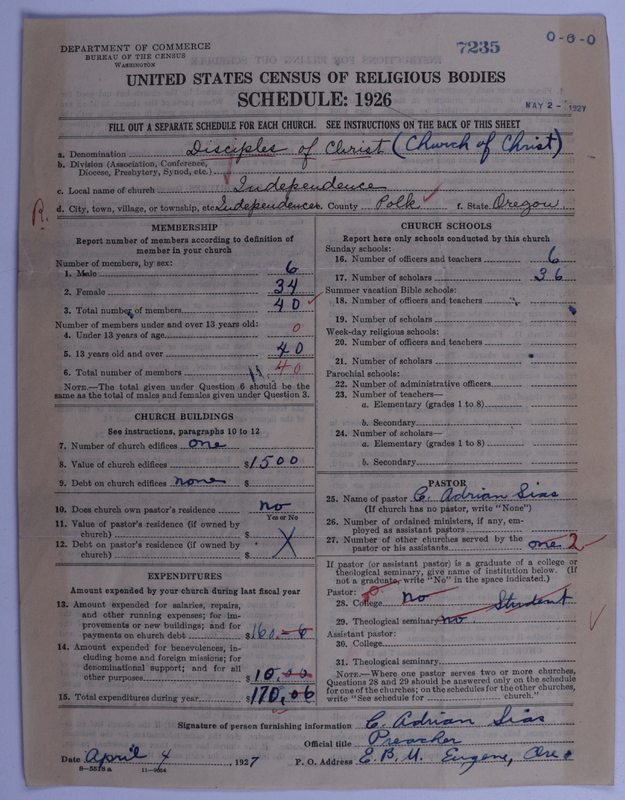 DEPARTMENT OF COMMERCE
BUREAU OF THE CENSUS
WASHINGTON
7235
0-6-0
UNITED STATES CENSUS OF RELIGIOUS BODIES
SCHEDULE: 1926
MAY 2 - 1927
FILL OUT A SEPARATE SCHEDULE FOR EACH CHURCH. SEE INSTRUCTIONS ON THE BACK OF THIS SHEET
a. Denomination Disciples of Christ (Church of Christ)
b. Division (Association, Conference, Diocese, Presbytery, Synod, etc.)
c. Local name of church Independence
R.
d. City, town, village, or township, etc. Independence e. County Polk f. State Oregon
MEMBERSHIP
Report number of members according to definition of
member in your church
Number of members, by sex:
1. Male 6
2. Female 34
3. Total number of members 40
Number of members under and over 13 years old:
4. Under 13 years of age 0
5. 13 years old and over 40
6. Total number of members 40
NOTE.—The total given under Question 6 should be the
same as the total of males and females given under Question 3.
CHURCH BUILDINGS
See instructions, paragraphs 10 to 12
7. Number of church edifices one
8. Value of church edifices $1500
9. Debt on church edifices none $
10. Does church own pastor's residence no
Yes or No
11. Value of pastor's residence (if owned by
church) $
12. Debt on pastor's residence (if owned by
church) $ X
EXPENDITURES
Amount expended by your church during last fiscal year
13. Amount expended for salaries, repairs,
and other running expenses; for im-
provements or new buildings; and for
payments on church debt $160.-6
14. Amount expended for benevolences, in-
cluding home and foreign missions; for
denominational support; and for all
other purposes $10.00
15. Total expenditures during year $170.06
CHURCH SCHOOLS
Report here only schools conducted by this church
Sunday schools:
16. Number of officers and teachers 6
17. Number of scholars 36
Summer vacation Bible schools:
18. Number of officers and teachers
19. Number of scholars
Week-day religious schools:
20. Number of officers and teachers
21. Number of scholars
Parochial schools:
22. Number of administrative officers
23. Number of teachers—
a. Elementary (grades 1 to 8)
b. Secondary
24. Number of scholars—
a. Elementary (grades 1 to 8)
b. Secondary
PASTOR
25. Name of pastor C. Adrian Sias
(If church has no pastor, write "None")
26. Number of ordained ministers, if any, em-
ployed as assistant pastors
27. Number of other churches served by the
pastor or his assistants one 2
If pastor (or assistant pastor) is a graduate of a college or
theological seminary, give name of institution below. (If
not a graduate, write "No" in the space indicated.)
Pastor:
28. College no Student
29. Theological seminary no
Assistant pastor:
30. College
31. Theological seminary
NOTE.—Where one pastor serves two or more churches,
Questions 28 and 29 should be answered only on the schedule
for one of the churches; on the schedules for the other churches,
write "See schedule for church."
Signature of person furnishing information C. Adrian Sias
Official title Preacher
Date April 4, 1927 P. O. Address E.B.U. Eugene, Ore.
8-5518 a